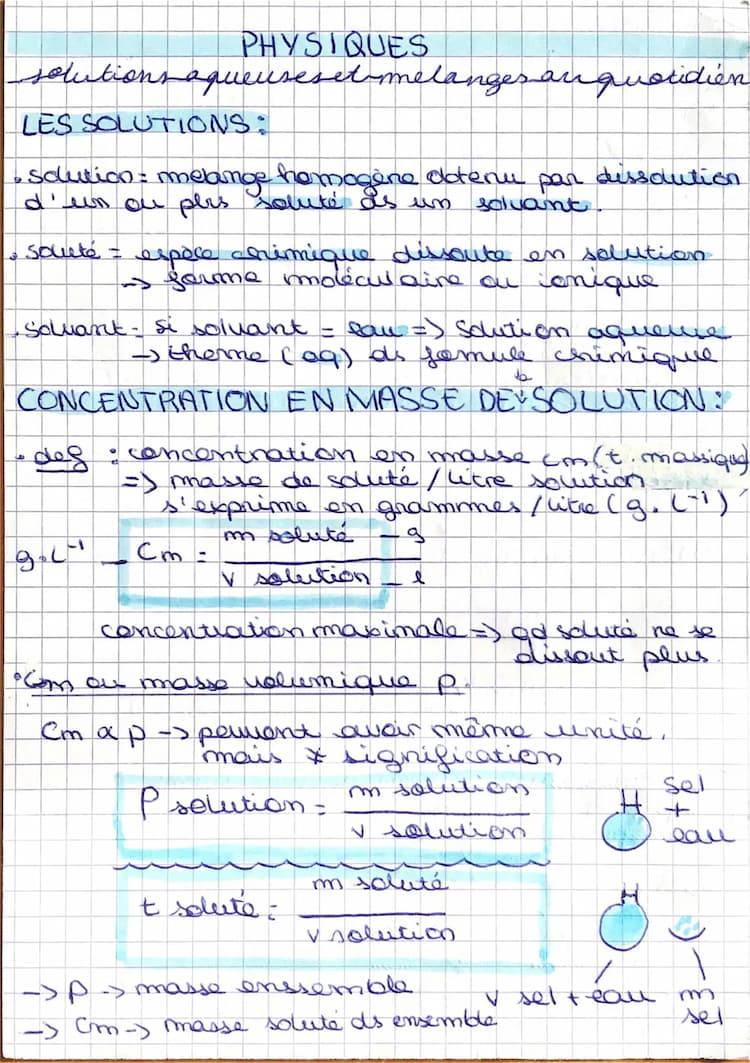 PHYSIQUES
solutions aqueuses et mélanges au quotidien
LES SOLUTIONS :
• solution = mélange homogène obtenu par dissolution
d'un ou plrs soluté ds un solvant.
• soluté = espèce chimique dissoute en solution
-> forme moléculaire ou ionique
• solvant = si solvant = eau => solution aqueuse
-> therme (aq) ds formule chimique
CONCENTRATION EN MASSE DE la SOLUTION :
• def : concentration en masse cm (t. massique)
=> masse de soluté / litre solution
s'exprime en grammes / litre (g.L⁻¹)
g.L⁻¹ – Cm = m soluté – g
v solution – l
concentration maximale => qd soluté ne se
dissout plus.
• Cm ou masse volumique ρ.
Cm ∝ ρ -> peuvent avoir même unité,
mais ≠ signification
ρ solution = m solution
v solution
sel
+
eau
t soluté = m soluté
v solution
-> ρ -> masse enssemble
v sel + eau
m
sel
-> Cm -> masse soluté ds ensemble